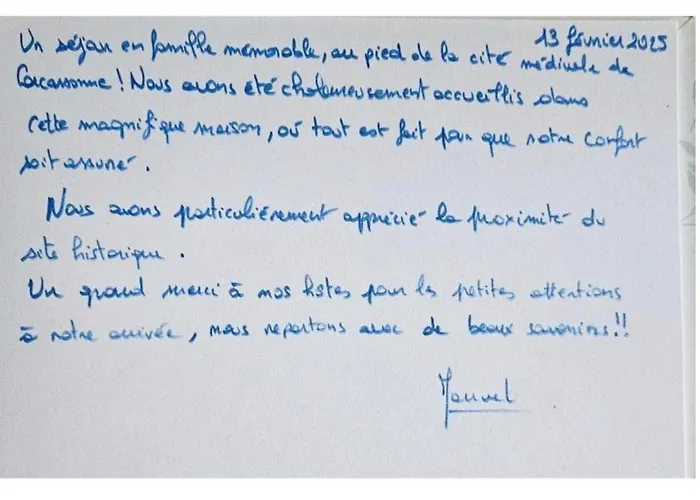 13 février 2025
Un séjour en famille mémorable, au pied de la cité médiévale de
Carcassonne ! Nous avons été chaleureusement accueillis dans
cette magnifique maison, où tout est fait pour que notre confort
soit assuré.
Nous avons particulièrement apprécié la proximité du
site historique.
Un grand merci à nos hôtes pour les petites attentions
à notre arrivée, nous repartons avec de beaux souvenirs !!